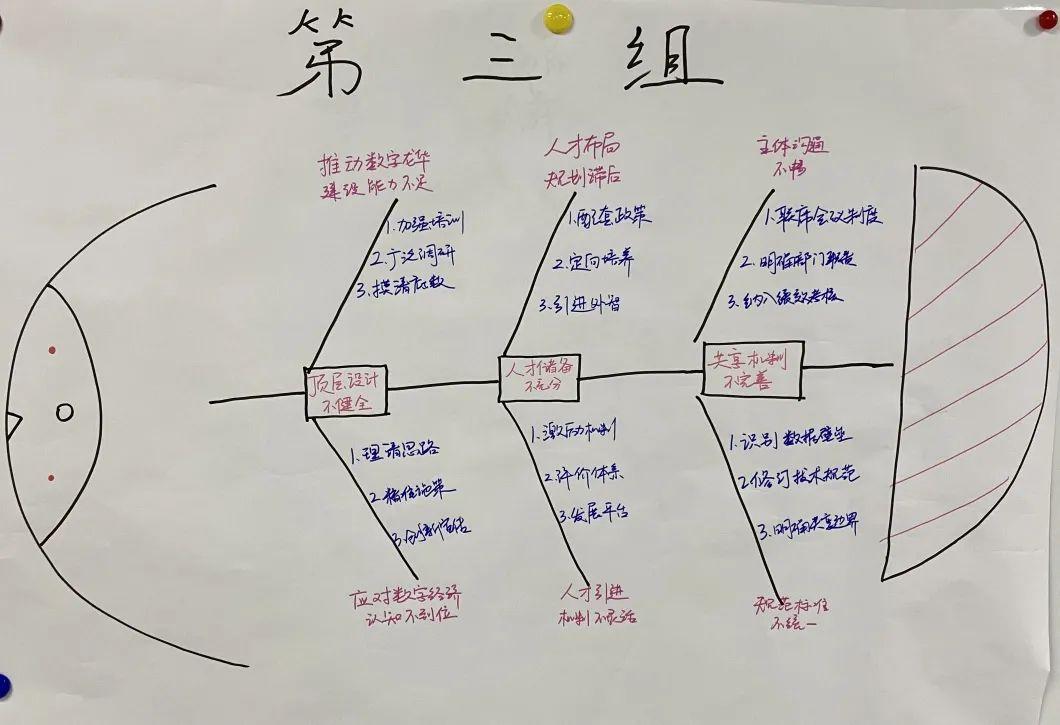 第三组
推动数字龙华
建设能力不足
1.加强培训
2.广泛调研
3.摸清底数
人才布局
规划滞后
1.配套政策
2.定向培养
3.引进外智
主体沟通
不畅
1.联席会议制度
2.明确部门职责
3.纳入绩效考核
顶层设计
不健全
人才储备
不充分
共享机制
不完善
1.理清思路
2.精准施策
3.创新宣传
应对数字经济
认知不到位
1.激励机制
2.评价体系
3.发展平台
人才引进
机制不灵活
1.识别数据壁垒
2.修订技术规范
3.明确共享边界
规范标准
不统一